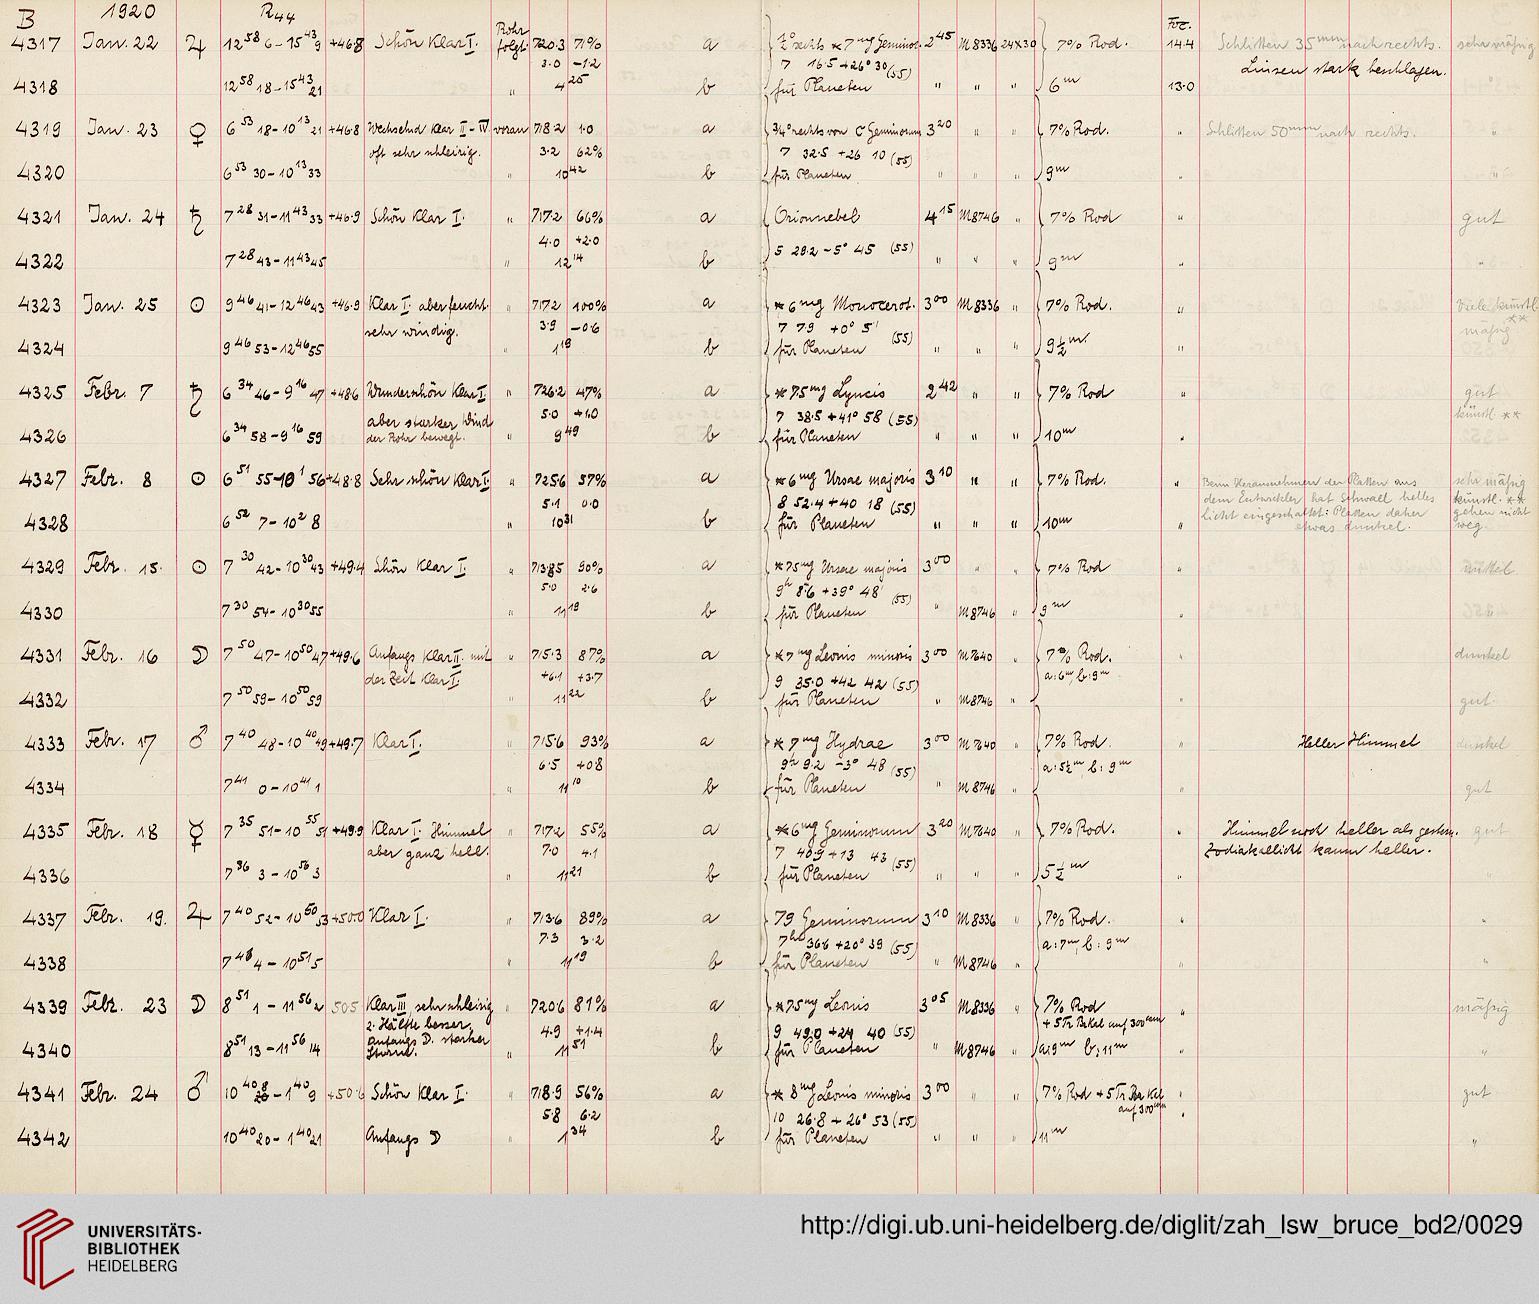 B 1920 R44
4317 Jan. 22 ♃ 12 58 6 - 15 43 9 +46.8 Schön Klar I. Rohr folgt. 720.3 71% a ½° rechts * 7mg Geminor. 2 45 M 8336 24x30 7% Rod. Foc. 14.4 Schlitten 35mm nach rechts. sehr mäßig
3.0 -1.2 7 16.5 +26° 30 (55) Linsen stark beschlagen.
4318 12 58 18 - 15 43 21 " 4 25 b für Planeten " " " 6m 13.0
4319 Jan. 23 ♀ 6 53 18 - 10 13 21 +46.8 Wechselnd Klar II - IV voran 718.2 1.0 a 3/4° rechts von c Geminorum 3 20 " " 7% Rod. " Schlitten 50mm nach rechts. "
oft sehr schleirig. 3.2 62% 7 32.5 +26 10 (55)
4320 6 53 30 - 10 13 33 " 10 42 b für Planeten " " " 9m "
4321 Jan. 24 ♄ 7 28 31 - 11 43 33 +46.9 Schön Klar I. " 717.2 66% a Orionnebel 4 15 M 8746 " 7% Rod " gut
4.0 +2.0 5 29.2 - 5° 45 (55)
4322 7 28 43 - 11 43 45 " 12 14 b " " " 9m " "
4323 Jan. 25 ☉ 9 46 41 - 12 46 43 +46.9 Klar I. aber feucht. " 717.2 100% a * 6mg Monocerot. 3 00 M 8336 " 7% Rod. " Viele künstl. **
sehr windig. 3.9 -0.6 7 7.9 +0° 5' (55) mäßig
4324 9 46 53 - 12 46 55 " 1 19 b für Planeten " " " 9½m. "
4325 Febr. 7 ♄ 6 34 46 - 9 16 47 +48.6 Wunderschön Klar I " 726.2 47% a * 7.5mg Lyncis 2 42 " " 7% Rod " gut
aber starker Wind 5.0 +1.0 7 38.5 +41° 58 (55) künstl. **
4326 6 34 58 - 9 16 59 der Rohr bewegt. " 9 49 b für Planeten " " " 10m "
4327 Febr. 8 ☉ 6 51 55 - 10 1 56 +48.8 Sehr schön Klar I " 725.6 57% a * 6mg Ursae majoris 3 10 " " 7% Rod. " Beim Herausnehmen der Platten aus sehr mäßig
5.1 0.0 8 52.4 +40 18 (55) dem Entwickler hat Schwall helles künstl. **
4328 6 52 7 - 10 2 8 " 10 31 b für Planeten " " " 10m " licht eingeschaltet: Platten daher etwas dunkel. gehen nicht weg.
4329 Febr. 15. ☉ 7 30 42 - 10 30 43 +49.4 Schön Klar I. " 713.85 90% a * 7.5mg Ursae majoris 3 00 " " 7% Rod "
5.0 2.6 9h 8.6 +39° 48' (55)
4330 7 30 54 - 10 30 55 " 11 19 b für Planeten " M 8746 " 9m " "
4331 Febr. 16 ☽ 7 50 47 - 10 50 47 +49.6 Anfangs Klar II. mit " 715.3 87% a * 7mg Leonis minoris 3 00 M 7640 " 7% Rod. " dunkel
der Zeit Klar I. +6.1 +3.7 9 35.0 +42 42 (55) a: 6m, b: 9m
4332 7 50 59 - 10 50 59 " 11 22 b für Planeten " M 8746 " gut.
4333 Febr. 17 ♂ 7 40 48 - 10 40 49 +49.7 Klar I. " 715.6 93% a * 7mg Hydrae 3 00 M 7640 " 7% Rod. " Heller Himmel dunkel
6.5 +0.8 9h 9.2 -3° 48 (55) a: 5½m, b: 9m
4334 7 41 0 - 10 41 1 " 11 10 b für Planeten " M 8746 " " gut
4335 Febr. 18 ☿ 7 35 51 - 10 55 51 +49.9 Klar I. Himmel " 717.2 55% a * 6mg Geminorum 3 20 M 7640 " 7% Rod. " Himmel noch heller als gestern. gut
aber ganz hell. 7.0 4.1 7 40.9 +13 43 (55) Zodiakallicht kaum heller.
4336 7 36 3 - 10 56 3 " 11 21 b für Planeten " " " 5½m " "
4337 Febr. 19. ♃ 7 40 52 - 10 50 53 +50.0 Klar I. " 713.6 89% a 79 Geminorum 3 10 M 8336 " 7% Rod. " "
7.3 3.2 7h 36.6 +20° 39 (55) a: 7m, b: 9m
4338 7 41 4 - 10 51 5 " 11 19 b für Planeten " M 8746 " " "
4339 Febr. 23 ☽ 8 51 1 - 11 56 2 50.5 Klar III sehr schleirig " 720.6 81% a * 7.5mg Leonis 3 05 M 8336 " 7% Rod " mäßig
2. Hälfte besser, 4.9 +1.4 9 49.0 +24 40 (55) + 5 Tr. Br. Kal auf 300ccm
4340 8 51 13 - 11 56 14 anfangs D. starker Sturm. " 11 51 b für Planeten " M 8746 " a: 9m b: 11m " "
4341 Febr. 24 ♂ 10 40 8 - 1 40 9 +50.6 Schön Klar I. " 718.9 56% a * 8mg Leonis minoris 3 00 7% Rod + 5 Tr. Br. Kal " gut
5.8 6.2 10 26.8 + 26° 53 (55) auf 300ccm "
4342 10 40 20 - 1 40 21 Anfangs D " 1 34 b für Planeten " " " 11m "
UNIVERSITÄTS-
BIBLIOTHEK
HEIDELBERG
http://digi.ub.uni-heidelberg.de/diglit/zah_lsw_bruce_bd2/0029